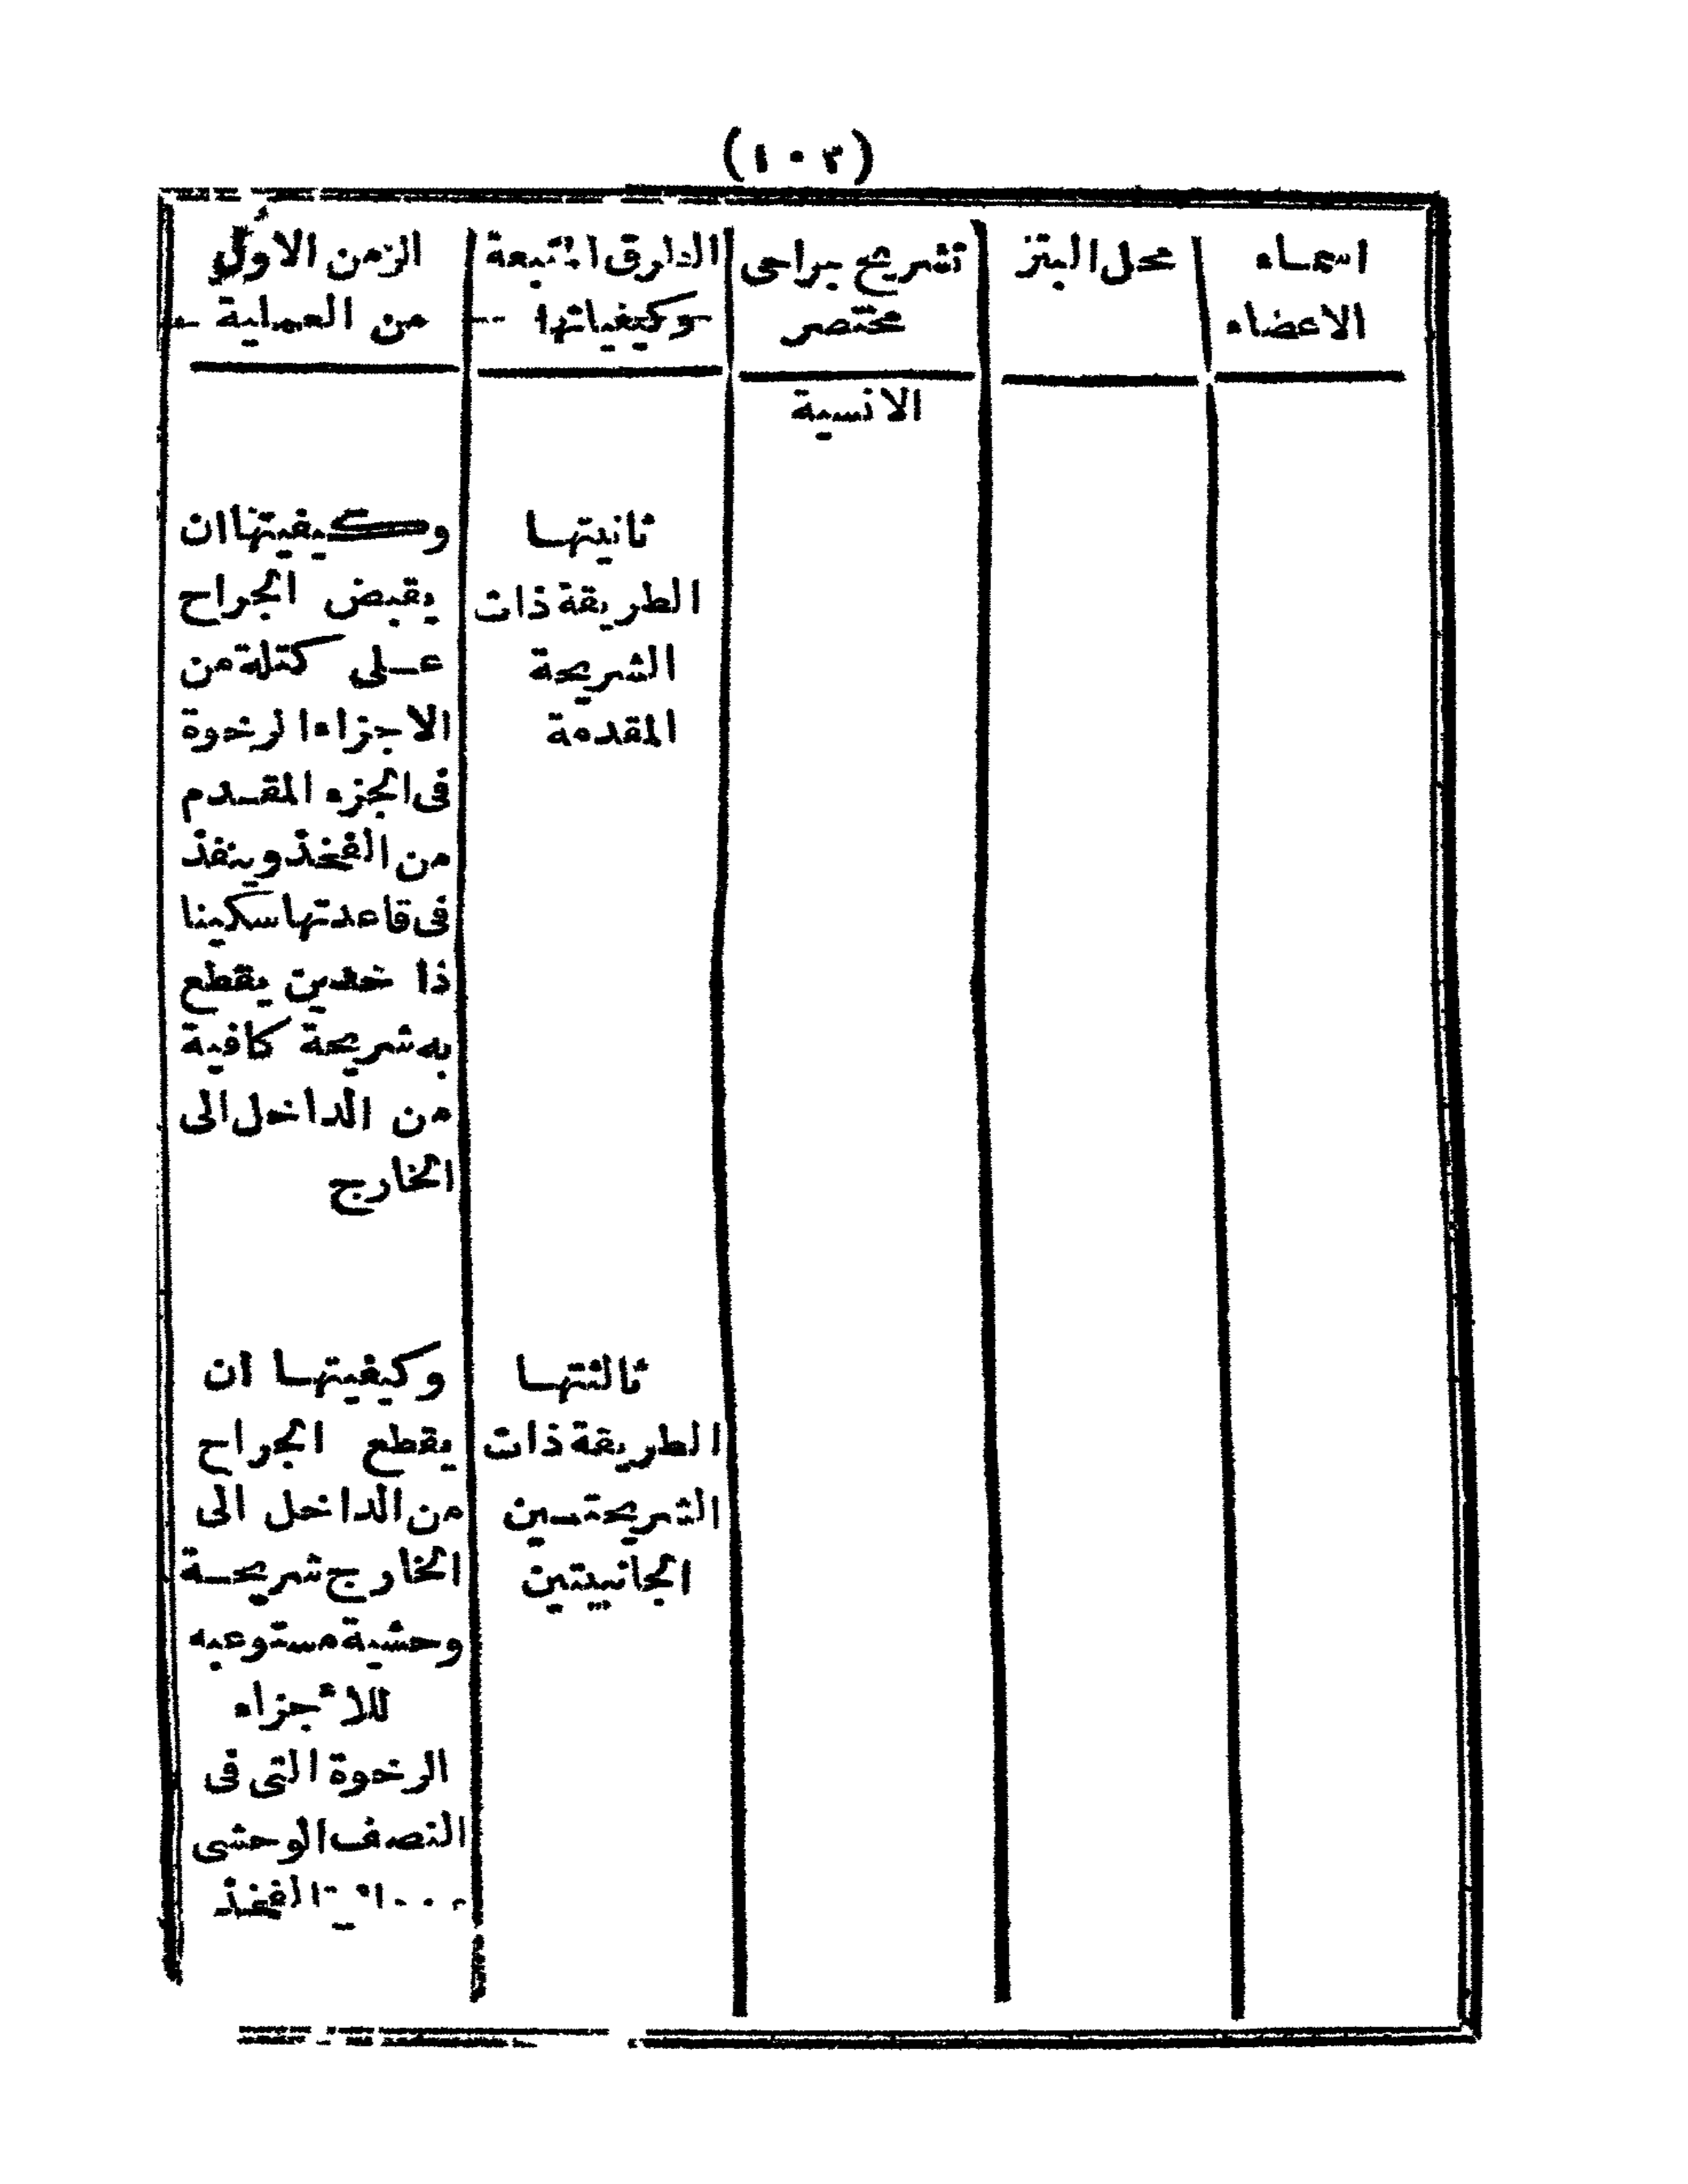 (١٠٣)
اسماء
الاعضاء
محل البتر
تشريح جراحى
مختصر
الطرق المتبعة
وكيفياتها
الزمن الاول
من العملية
الانسية
ثانيتها
الطريقة ذات
الشريحة
المقدمة
وكيفيتها ان
يقبض الجراح
على كتلة من
الاجزاء الرخوة
فى الجزء المقدم
من الفخذ وينفذ
فى قاعدتها سكينا
ذا حدين يقطع
به شريحة كافية
من الداخل الى
الخارج
ثالثتها
الطريقة ذات
الشريحتين
الجانبيتين
وكيفيتها ان
يقطع الجراح
من الداخل الى
الخارج شريحة
وحشية مستوعبه
للأجزاء
الرخوة التى فى
النصف الوحشى
الفخذ